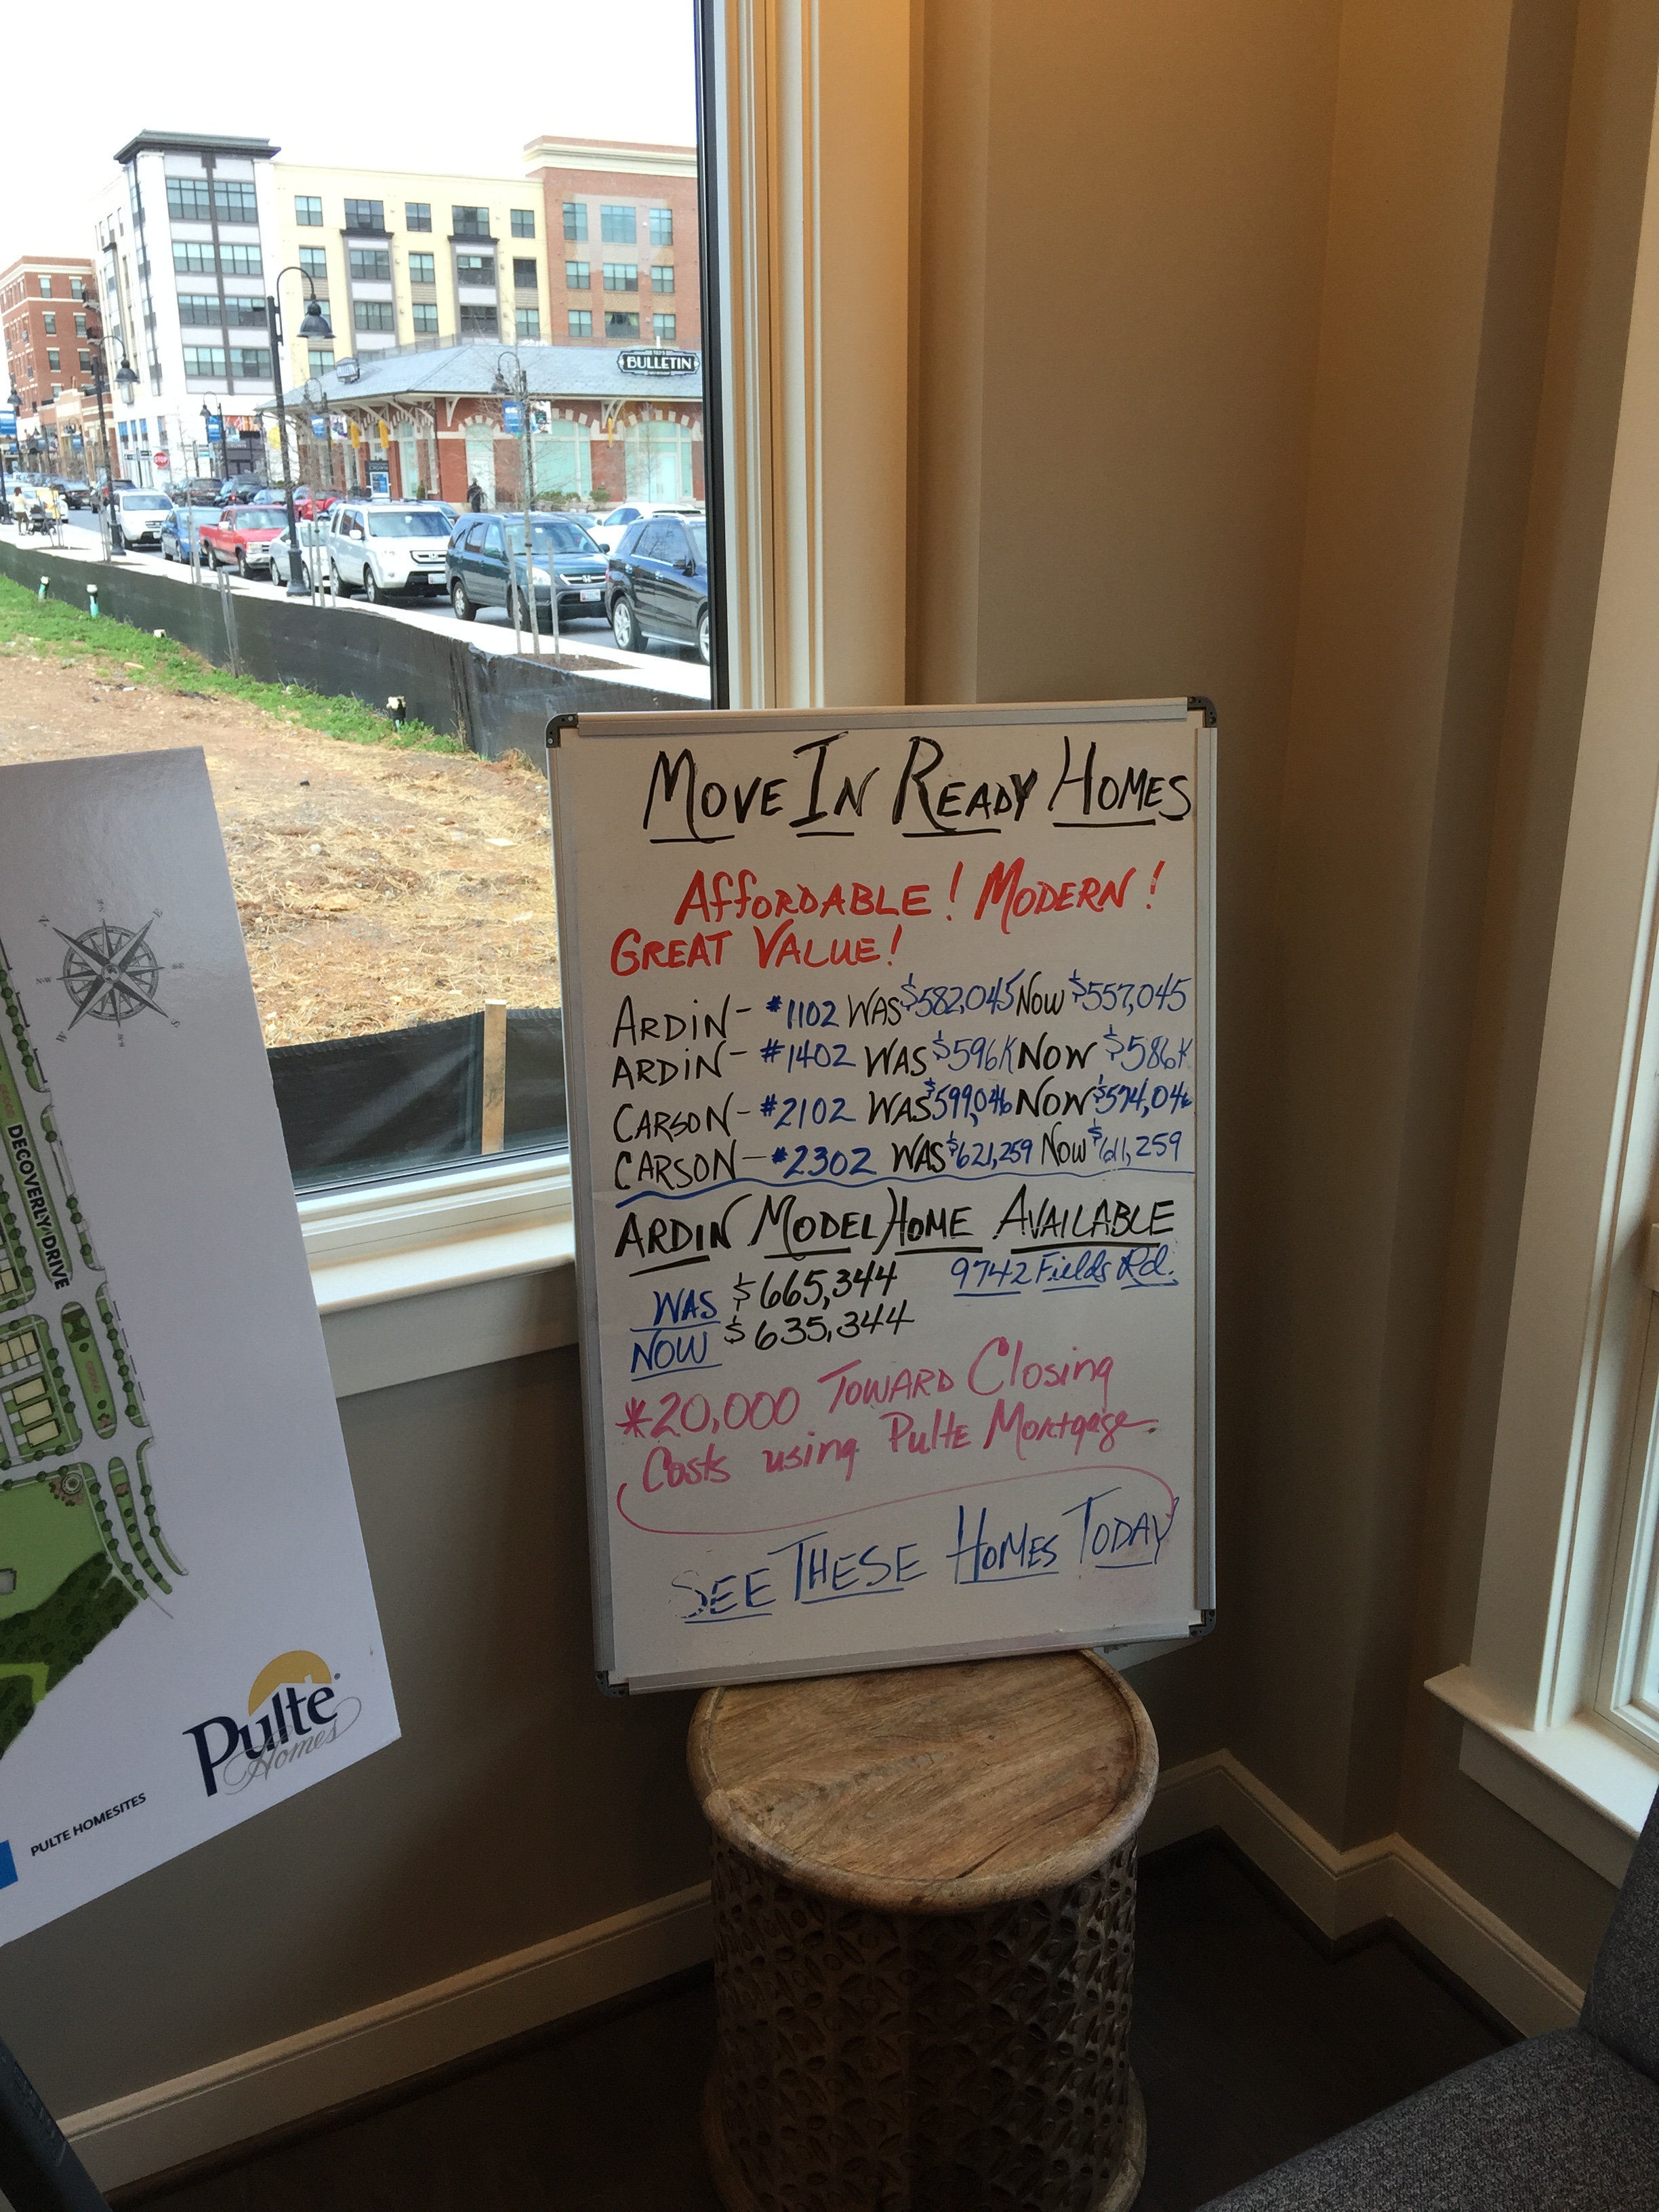 BULLETIN
MOVE IN READY HOMES
AFFORDABLE! MODERN!
GREAT VALUE!
ARDIN - #1102 WAS $582,045 NOW $557,045
ARDIN - #1402 WAS $596K NOW $586K
CARSON - #2102 WAS $599,046 NOW $574,046
CARSON - #2302 WAS $621,259 NOW $611,259
ARDIN MODEL HOME AVAILABLE
WAS $665,344 9742 Fields Rd.
NOW $635,344
*20,000 TOWARD Closing
Costs using Pulte Mortgage.
SEE THESE HOMES TODAY
DECOVERLY DRIVE
Pulte
Homes
PULTE HOMESITES